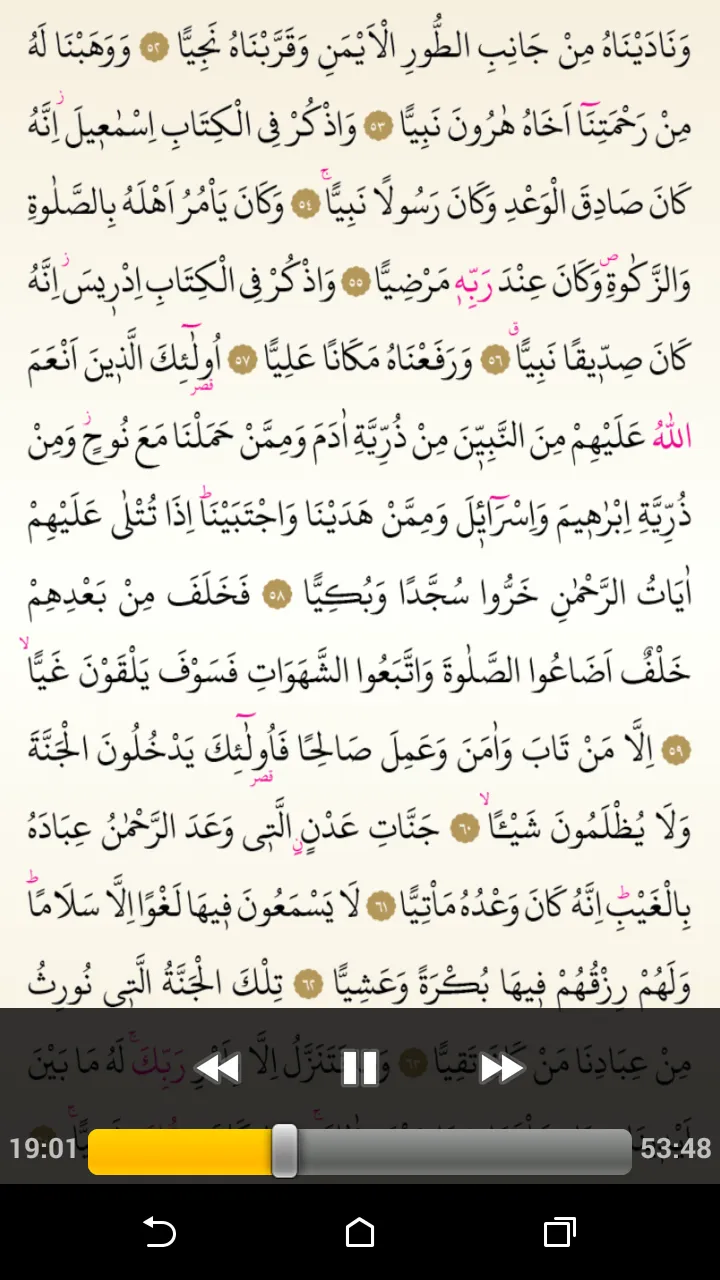 وَنَادَيْنَاهُ مِنْ جَانِبِ الطُّورِ الْاَيْمَنِ وَقَرَّبْنَاهُ نَجِيًّا ﴿٥٢﴾ وَوَهَبْنَا لَهُ
مِنْ رَحْمَتِنَٓا اَخَاهُ هٰرُونَ نَبِيًّا ﴿٥٣﴾ وَاذْكُرْ فِى الْكِتَابِ اِسْمٰع۪يلَۘ اِنَّهُ
كَانَ صَادِقَ الْوَعْدِ وَكَانَ رَسُولًا نَبِيًّاۚ ﴿٥٤﴾ وَكَانَ يَاْمُرُ اَهْلَهُ بِالصَّلٰوةِ
وَالزَّكٰوةِۖ وَكَانَ عِنْدَ رَبِّه۪ مَرْضِيًّا ﴿٥٥﴾ وَاذْكُرْ فِى الْكِتَابِ اِدْر۪يسَۘ اِنَّهُ
كَانَ صِدّ۪يقًا نَبِيًّاۗ ﴿٥٦﴾ وَرَفَعْنَاهُ مَكَانًا عَلِيًّا ﴿٥٧﴾ اُولٰٓئِكَ الَّذ۪ينَ اَنْعَمَ
قصر
اللّٰهُ عَلَيْهِمْ مِنَ النَّبِيّ۪نَ مِنْ ذُرِّيَّةِ اٰدَمَ وَمِمَّنْ حَمَلْنَا مَعَ نُوحٍۘ وَمِنْ
ذُرِّيَّةِ اِبْرٰه۪يمَ وَاِسْرَٓائ۪لَ وَمِمَّنْ هَدَيْنَا وَاجْتَبَيْنَاۜ اِذَا تُتْلٰى عَلَيْهِمْ
اٰيَاتُ الرَّحْمٰنِ خَرُّوا سُجَّدًا وَبُكِيًّا ﴿٥٨﴾ فَخَلَفَ مِنْ بَعْدِهِمْ
خَلْفٌ اَضَاعُوا الصَّلٰوةَ وَاتَّبَعُوا الشَّهَوَاتِ فَسَوْفَ يَلْقَوْنَ غَيًّاۙ
﴿٥٩﴾ اِلَّا مَنْ تَابَ وَاٰمَنَ وَعَمِلَ صَالِحًا فَاُولٰٓئِكَ يَدْخُلُونَ الْجَنَّةَ
قصر
وَلَا يُظْلَمُونَ شَيْـًٔاۙ ﴿٦٠﴾ جَنَّاتِ عَدْنٍۨ الَّت۪ى وَعَدَ الرَّحْمٰنُ عِبَادَهُ
بِالْغَيْبِۜ اِنَّهُ كَانَ وَعْدُهُ مَاْتِيًّا ﴿٦١﴾ لَا يَسْمَعُونَ ف۪يهَا لَغْوًا اِلَّا سَلَامًاۜ
وَلَهُمْ رِزْقُهُمْ ف۪يهَا بُكْرَةً وَعَشِيًّا ﴿٦٢﴾ تِلْكَ الْجَنَّةُ الَّت۪ى نُورِثُ
مِنْ عِبَادِنَا مَنْ كَانَ تَقِيًّا ﴿٦٣﴾ وَمَا نَتَنَزَّلُ اِلَّا بِاَمْرِ رَبِّكَۚ لَهُ مَا بَيْنَ
19:01 53:48